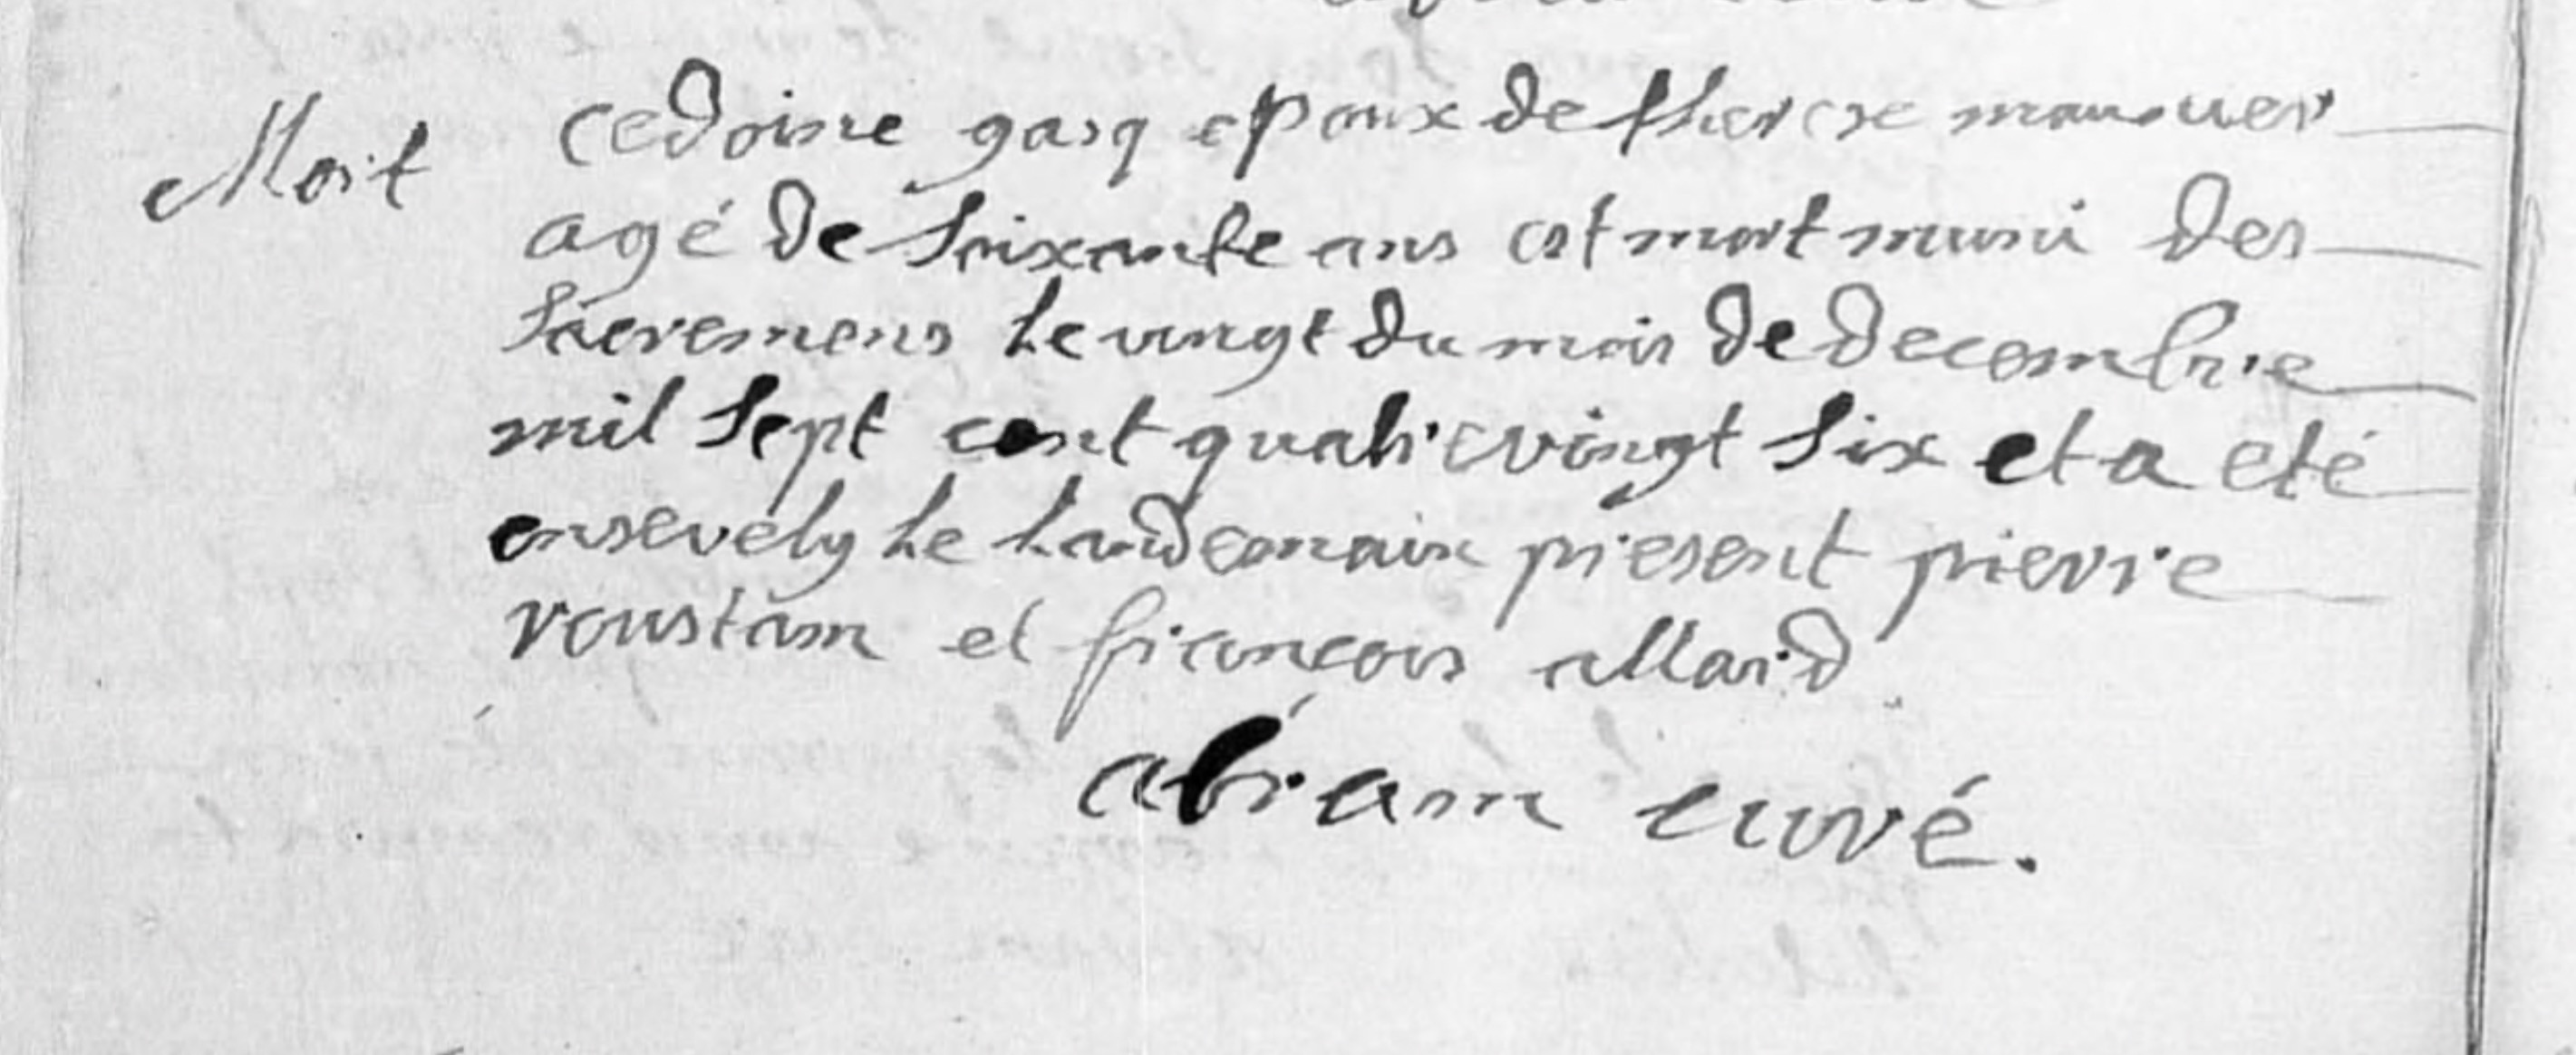 Mort
cedoine gasq epoux de therese manouer
agé de soixante ans est mort muni des
sacremens le vingt du mois de decembre
mil sept cent quatrevingt six et a eté
ensevely le landemain present pierre
roustam et françois allard
abram curé.